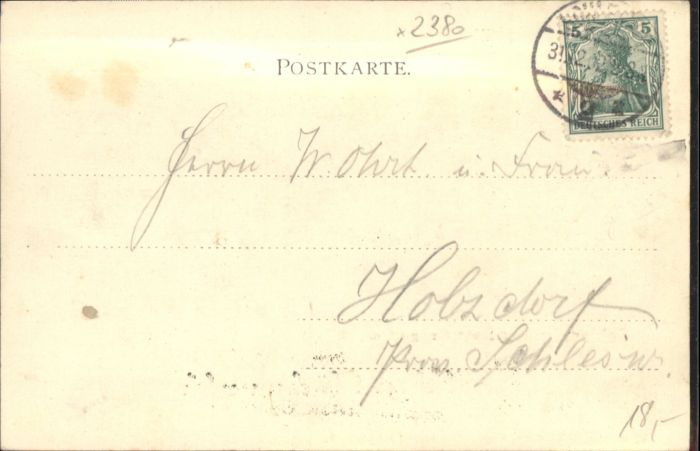 x2380
5 5
31.12.
POSTKARTE.
DEUTSCHES REICH
Herrn W. Ohrt. u. Frau.
Holzdorf
Prov. Schlesw.
18,-